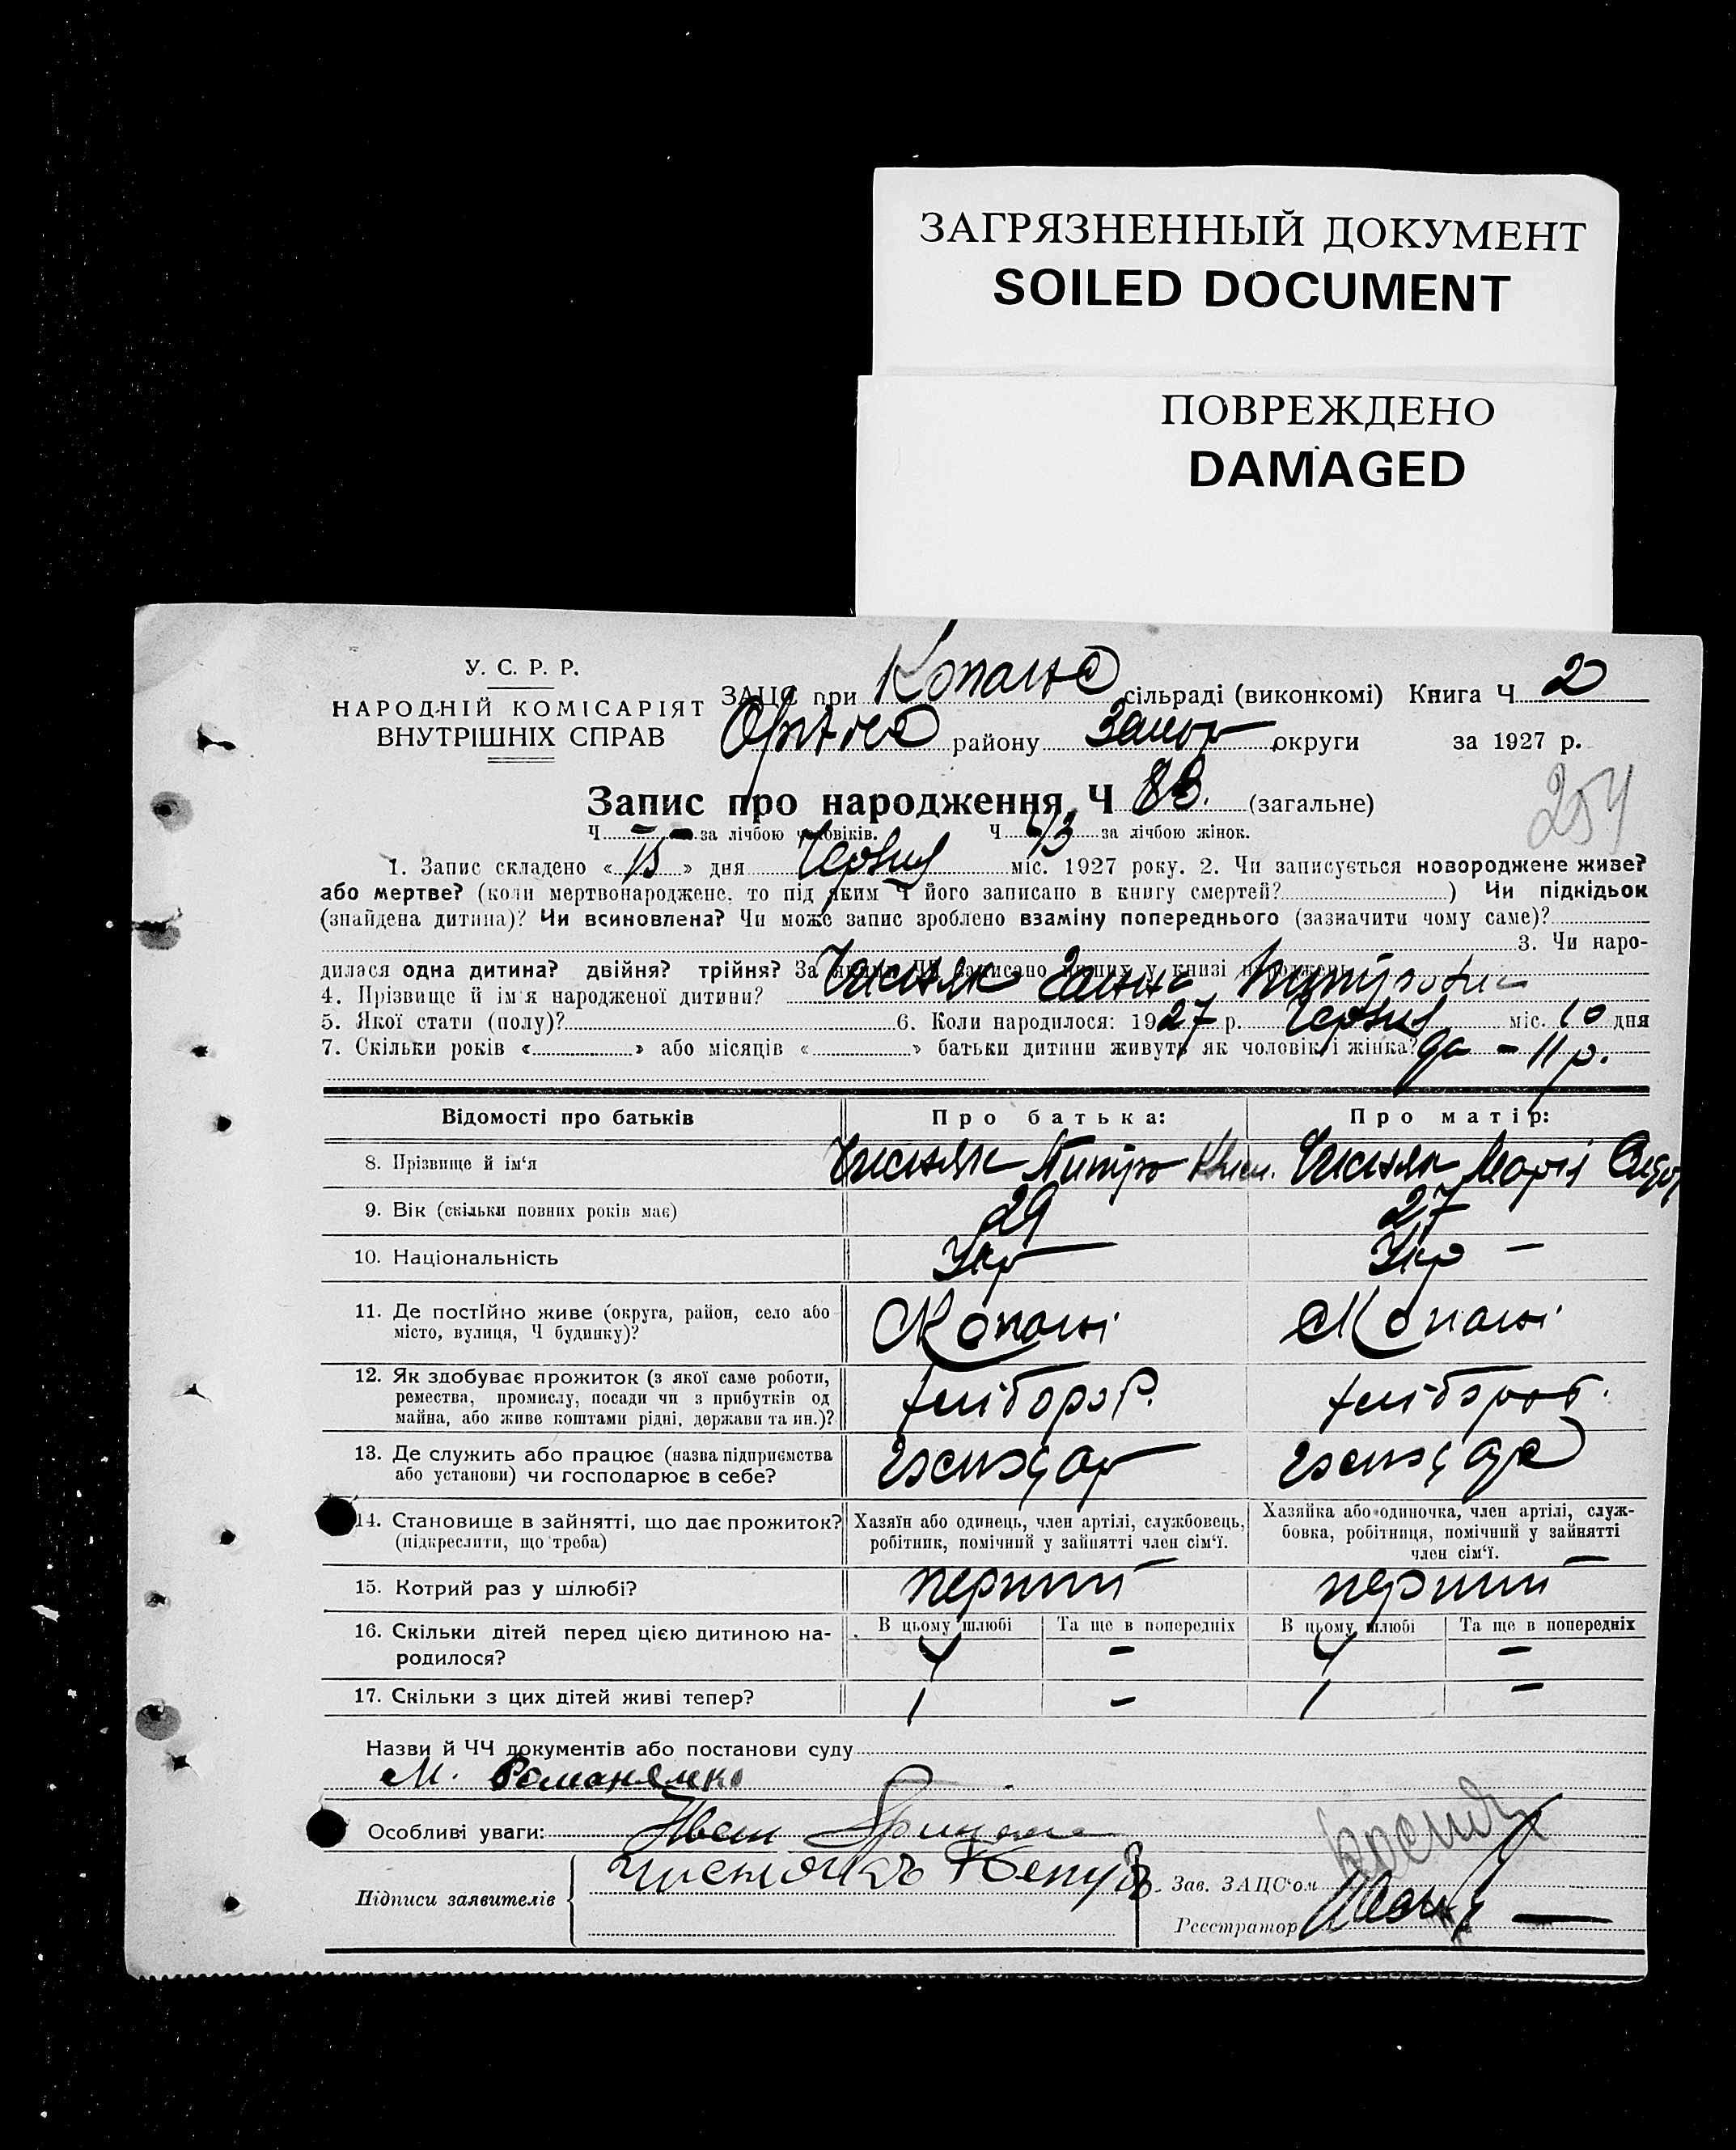 ЗАГРЯЗНЕННЫЙ ДОКУМЕНТ
SOILED DOCUMENT
ПОВРЕЖДЕНО
DAMAGED
У. С. Р. Р.
НАРОДНІЙ КОМІСАРІЯТ
ВНУТРІШНІХ СПРАВ
ЗАЦС при сільраді (виконкомі) Книга Ч 2
району Запор округи за 1927 р.
Запис про народження Ч 83. (загальне)
254
Ч — за лічбою чоловіків. Ч за лічбою жінок.
1. Запис складено « » дня Червня міс. 1927 року. 2. Чи записується новороджене живе?
або мертве? (коли мертвонароджене, то під яким Ч його записано в книгу смертей? ) Чи підкідьок
(знайдена дитина)? Чи всиновлена? Чи може запис зроблено взаміну попереднього (зазначити чому саме)?
3. Чи наро-
дилася одна дитина? двійня? трійня? За якими ЧЧ записано инших у книзі народжень
4. Прізвище й ім'я народженої дитини? Чистяк Ганна
5. Якої стати (полу)? 6. Коли народилося: 1927 р. Червня міс. 10 дня
7. Скільки років « » або місяців « » батьки дитини живуть як чоловік і жінка? да — 11 р.
Відомості про батьків Про батька: Про матір:
8. Прізвище й ім'я Чистяк Чистяк Марія
9. Вік (скільки повних років має) 29 27
10. Національність Укр Укр —
11. Де постійно живе (округа, район, село або
місто, вулиця, Ч будинку)? с Копані с Копані
12. Як здобуває прожиток (з якої саме роботи,
ремества, промислу, посади чи з прибутків од
майна, або живе коштами рідні, держави та ин.)? хлібороб. хлібороб.
13. Де служить або працює (назва підприємства
або установи) чи господарює в себе?
14. Становище в зайнятті, що дає прожиток?
(підкреслити, що треба)
Хазяїн або одинець, член артілі, службовець,
робітник, помічний у зайнятті член сім'ї.
Хазяйка або одиночка, член артілі, служ-
бовка, робітниця, помічний у зайнятті
член сім'ї.
15. Котрий раз у шлюбі? перший перший
16. Скільки дітей перед цією дитиною на-
родилося?
В цьому шлюбі Та ще в попередніх В цьому шлюбі Та ще в попередніх
4 — 4 —
17. Скільки з цих дітей живі тепер? 1 — 1 —
Назви й ЧЧ документів або постанови суду
М. Романенко
Особливі уваги: Иван
Підписи заявителів
Зав. ЗАЦС'ом
Реєстратор